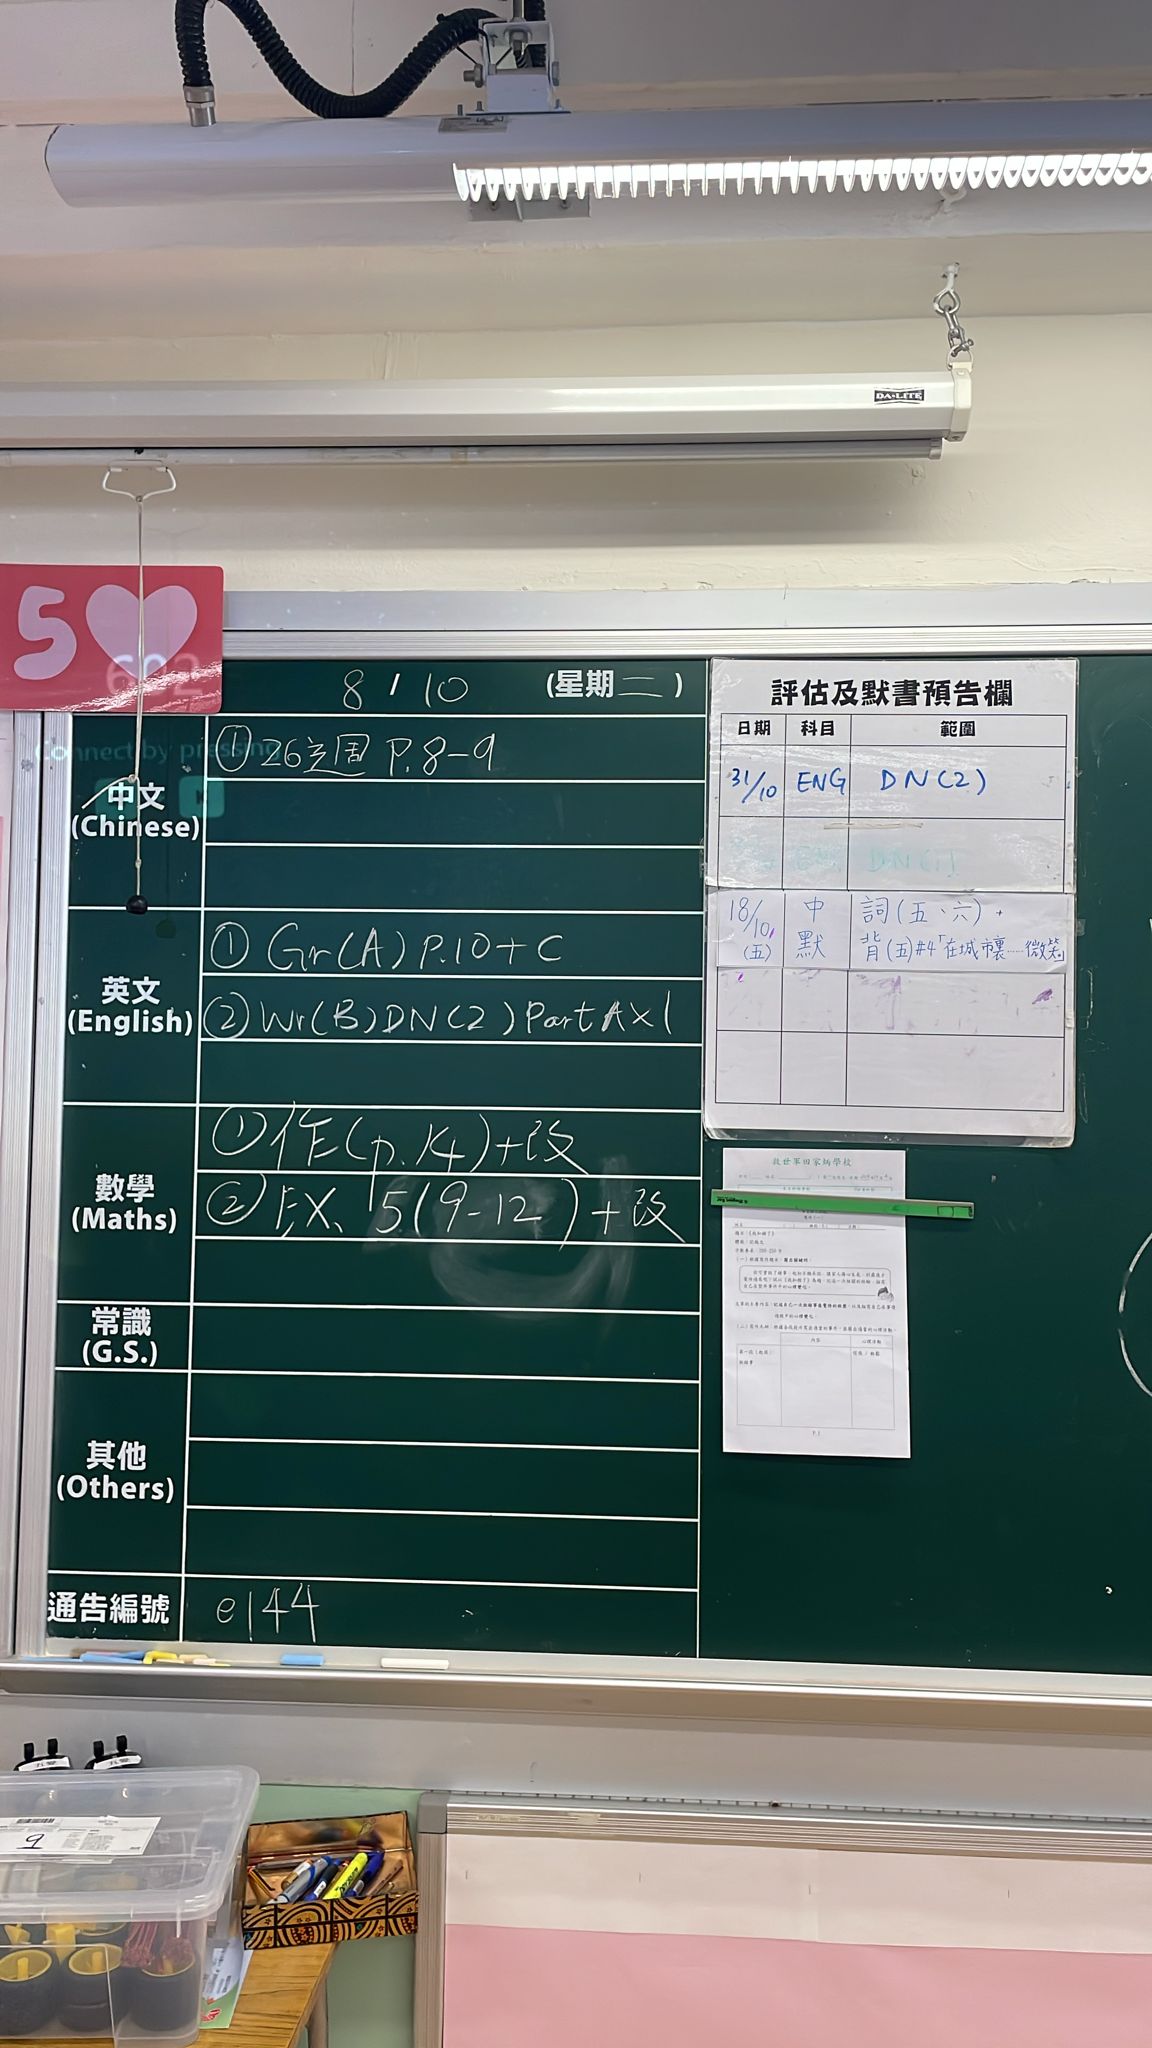 DA-LITE
5
602
Connect by pressing
8 / 10 (星期二)
中文
(Chinese)
① 26主周 P.8-9
英文
(English)
① Gr(A) P.10 + C
② Wr(B) DN(2) Part A X 1
數學
(Maths)
① 作(p.14)+改
② EX. 15(9-12)+改
常識
(G.S.)
其他
(Others)
通告編號
e144
評估及默書預告欄
日期 科目 範圍
31/10 ENG DN(2)
DN(1)
18/10 (五) 中默 詞(五、六)，
背(五)#4「在城市裏……微笑」
救世軍田家炳學校
內容 心理活動
P.1
9